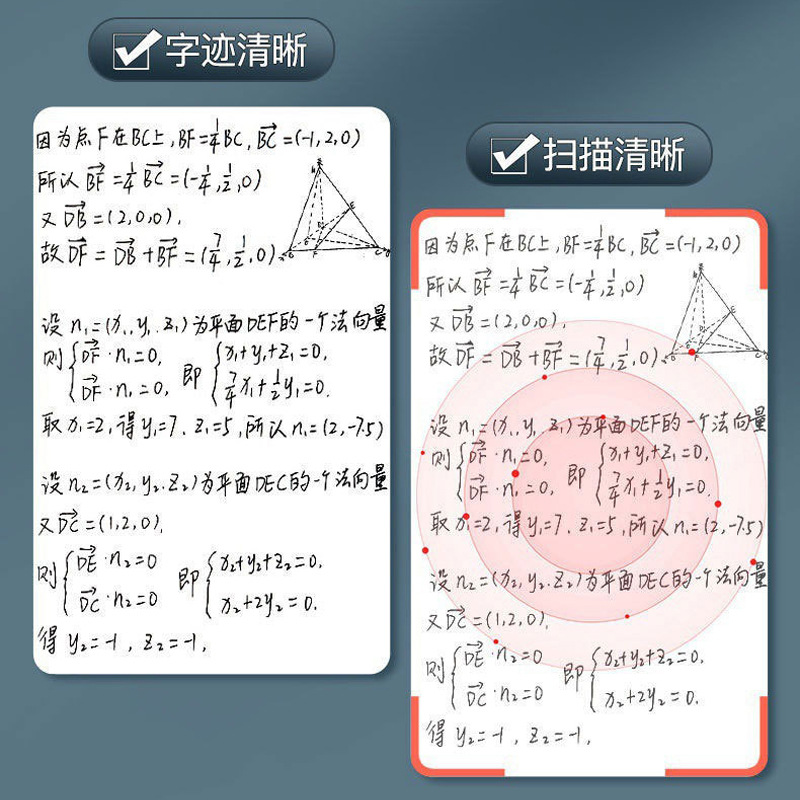 字迹清晰
因为点F在BC上,BF=¼BC,BC→=(-1,2,0)
所以BF→=¼BC→=(-¼,½,0)
又DB→=(2,0,0),
故DF→=DB→+BF→=(7/4,½,0)
设n₁=(x₁,y₁,z₁)为平面DEF的一个法向量
则{DF→·n₁=0, 即{x₁+y₁+z₁=0,
DF→·n₁=0, 7/4x₁+½y₁=0.
取x₁=2,得y₁=7、z₁=5,所以n₁=(2,-7.5)
设n₂=(x₂,y₂.z₂)为平面DEC的一个法向量
又DC→=(1,2,0),
则{DE→·n₂=0 即{x₂+y₂+z₂=0,
DC→·n₂=0 x₂+2y₂=0.
得y₂=-1,z₂=-1,
扫描清晰
因为点F在BC上,BF=¼BC,BC→=(-1,2,0)
所以BF→=¼BC→=(-¼,½,0)
又DB→=(2,0,0),
故DF→=DB→+BF→=(7/4,½,0)
设n₁=(x₁,y₁,z₁)为平面DEF的一个法向量
则{DF→·n₁=0, 即{x₁+y₁+z₁=0,
DF→·n₁=0, 7/4x₁+½y₁=0.
取x₁=2,得y₁=7、z₁=5,所以n₁=(2,-7.5)
设n₂=(x₂,y₂.z₂)为平面DEC的一个法向量
又DC→=(1,2,0),
则{DE→·n₂=0 即{x₂+y₂+z₂=0,
DC→·n₂=0 x₂+2y₂=0.
得y₂=-1,z₂=-1,